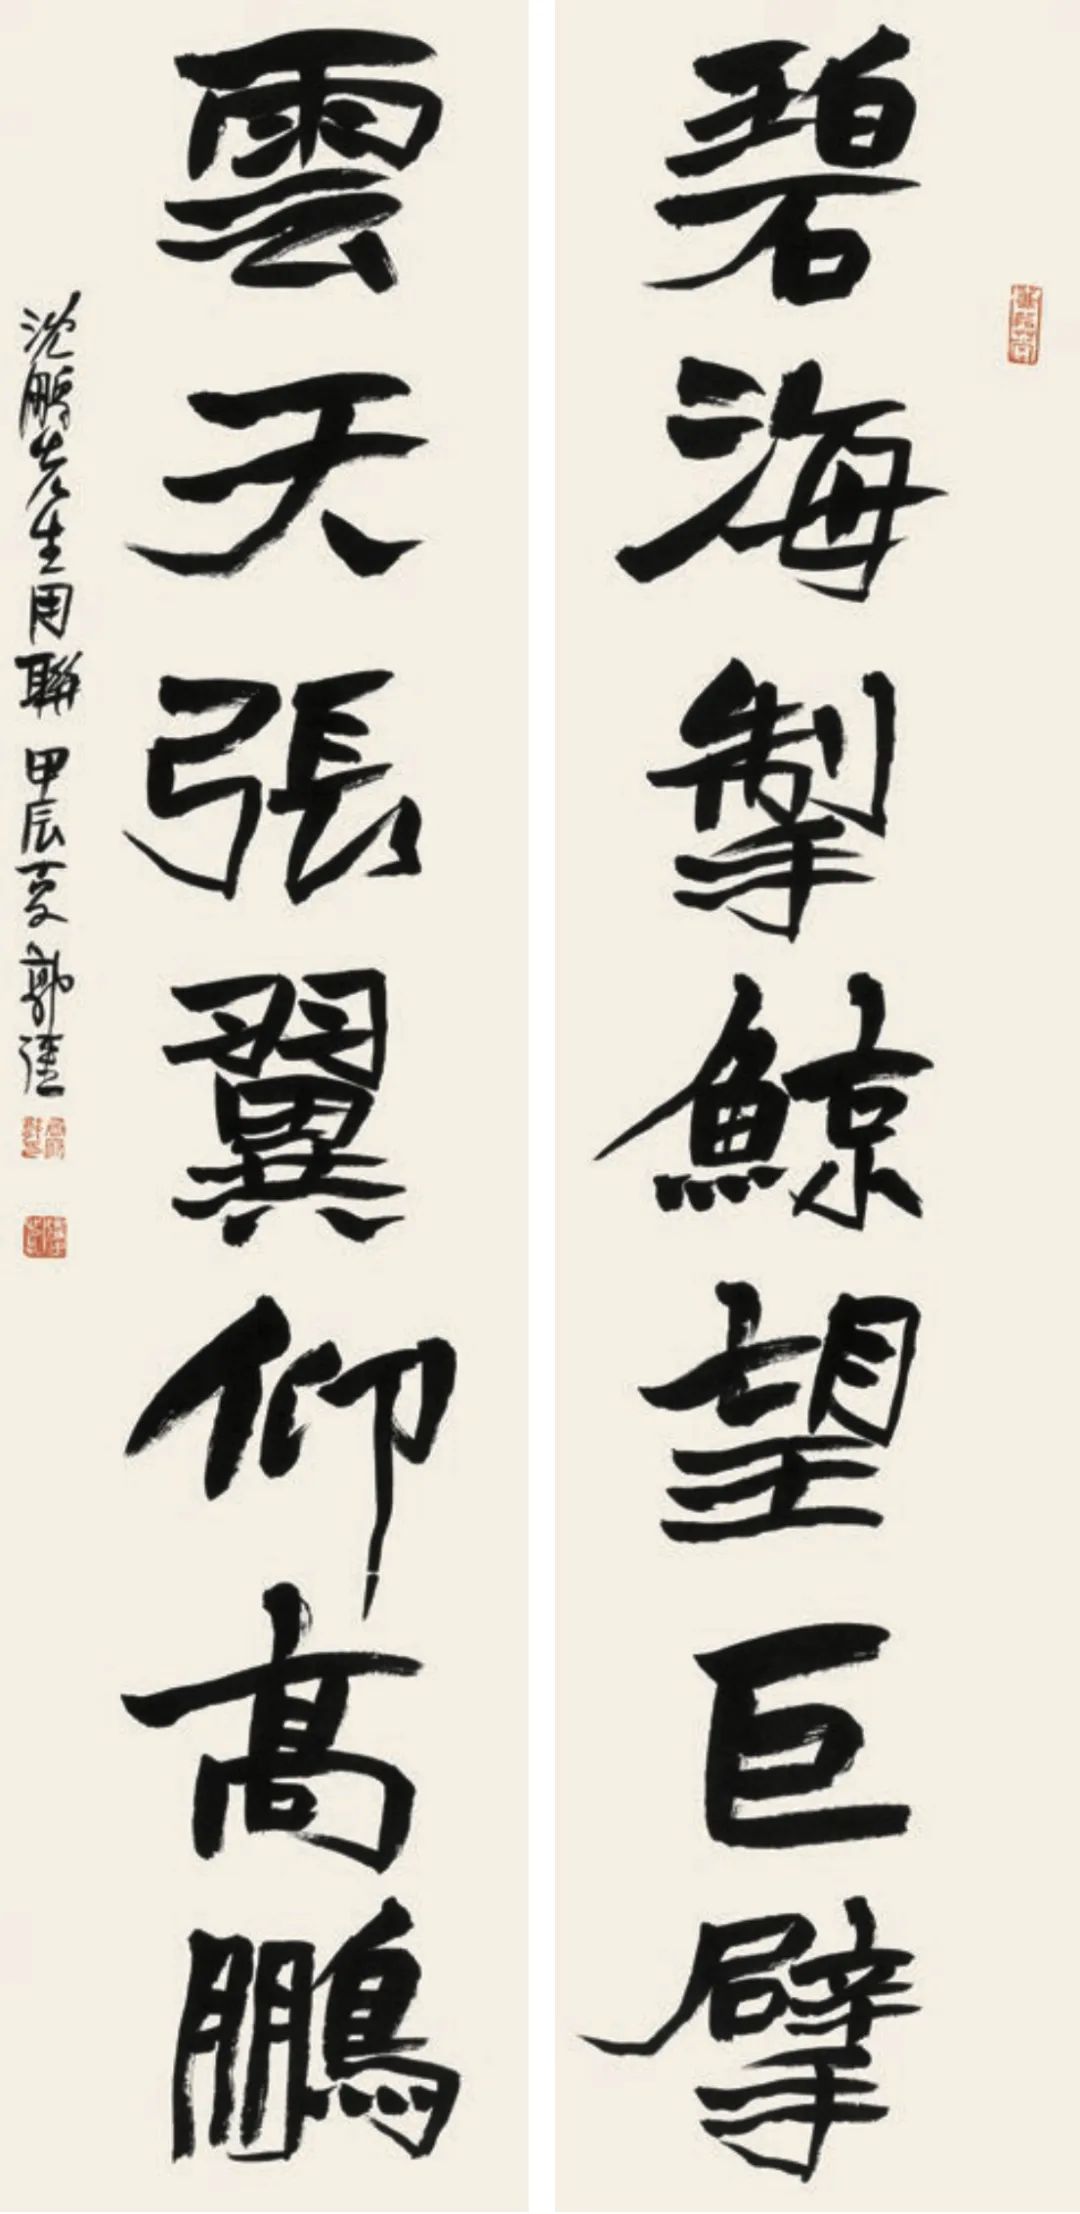 碧海掣鯨望巨擘
雲天張翼仰高鵬
沈鵬先生聯 甲辰夏 郭